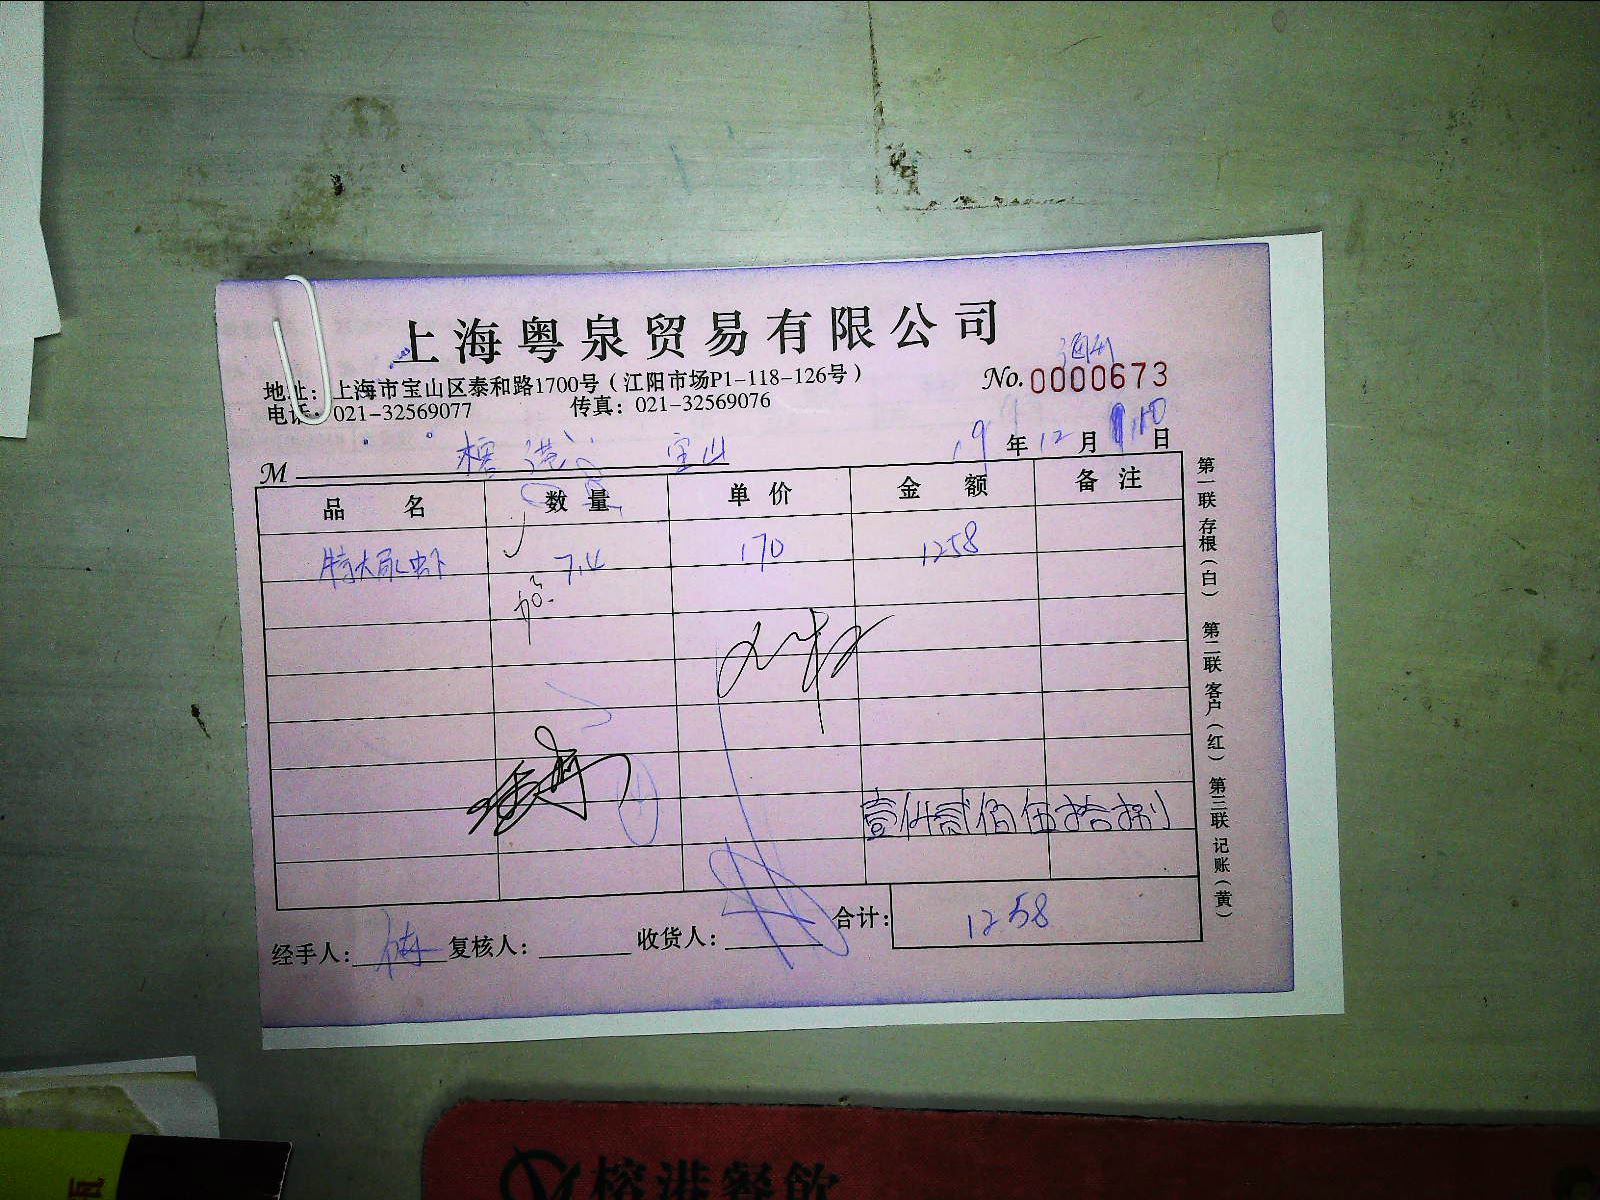 上海粤泉贸易有限公司
地址：上海市宝山区泰和路1700号（江阳市场P1-118-126号）
No. 0000673
电话：021-32569077 传真：021-32569076
M 榕港 宝山
19年12月10日
品名 数量 单价 金额 备注
特大尿虾 7.4 170 1258
壹仟贰佰伍拾捌
合计： 1258
经手人： 复核人： 收货人：
第一联 存根（白） 第二联 客户（红） 第三联 记账（黄）
榕港餐飲